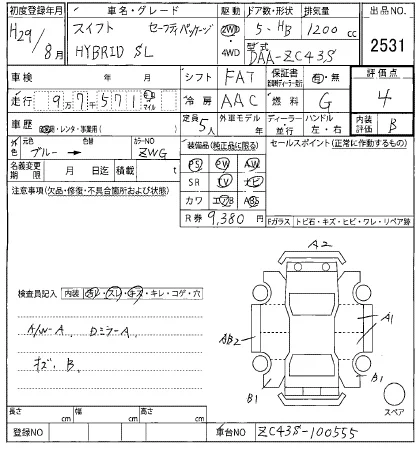 初度登録年月 車名・グレード 駆動 ドア数・形状 排気量 出品NO.
H29/8月 スイフト セーフティパッケージ HYBRID SL 2WD・4WD 5・HB 1200cc 2531
型式 DAA-ZC43S
車検 年 月 シフト FAT 保証書 有・無 評価点 4
走行 9万7千571 マイル 冷房 AAC 燃料 G
車歴 自家用・レンタ・事業用( ) 定員 5人 外車モデル 年 ディーラー・並行 ハンドル 左・右 内装評価 B
外色 元色 ブルー → 色替 カラーNO ZWG 装備品(純正品に限る) セールスポイント(正常に作動するもの)
名義変更期限 月 日迄 積載 t PS PW AW
SR TV ナビ
注意事項(欠品・修復・不具合箇所および状態) カワ エアB ABS
R券 9,380円
Fガラス トビ石・キズ・ヒビ・ワレ・リペア跡
A2
検査員記入 内装 汚レ・スレ・キズ・キレ・コゲ・穴
A/W-A Dミラー A
キズ・B
A1
AB2
B1
B1
スペア
長さ cm 幅 cm 高さ cm
登録NO 車台NO ZC43S-100555